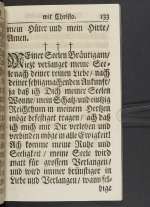 mit Christo. 133
mein Hüter und mein Hirte/
Amen.
† † †
MEiner Seelen Bräutigam/
wie verlanget meine See-
le nach deiner reinen Liebe/ nach
deiner seligmachenden Ankunft
ja daß ich Dich meine Seelen
Wonne/ mein Schatz und einzig
Reichthum in meinem Hertzen
möge befestiget tragen/ ach daß
ich mich mit Dir verloben und
verbinden möge in alle Ewigkeit
Ach komme meine Ruhe und
Seeligkeit/ meine Seele wird
matt für grossem Verlangen/
und wird immer brünstiger in
Liebe und Verlangen/ wann sel-
bige